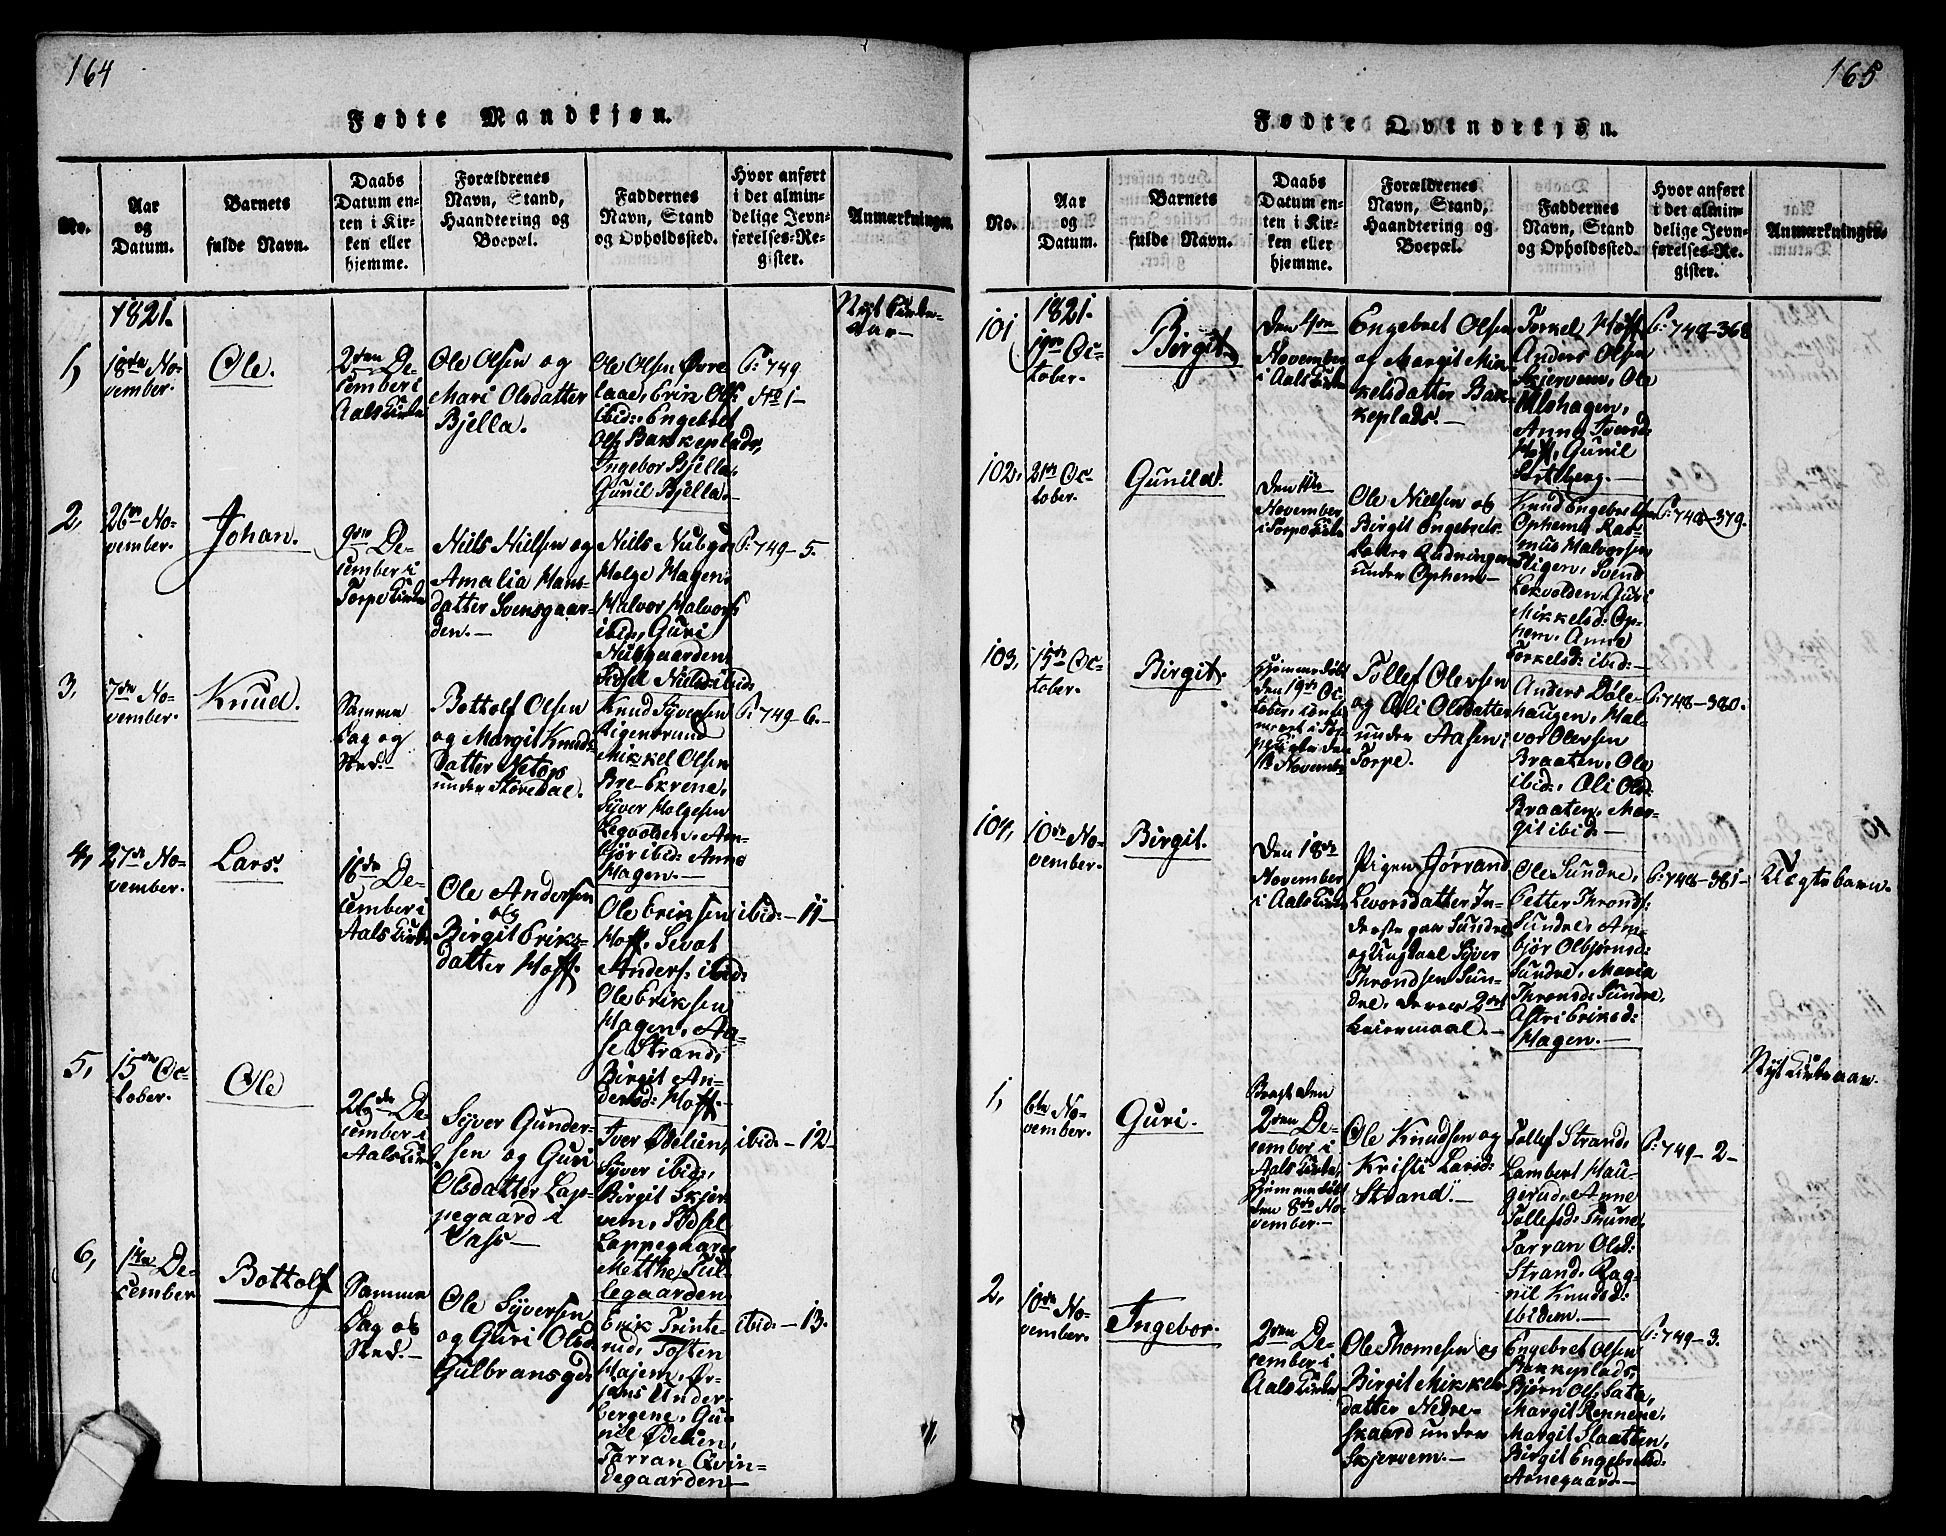 164
Fødte Mandkjøn.
No.
Aar
og
Datum.
Barnets
fulde Navn.
Daabs
Datum en-
ten i Kir-
ken eller
hjemme.
Forældrenes
Navn, Stand,
Haandtering og
Boepæl.
Faddernes
Navn, Stand
og Opholdssted.
Hvor anført
i det almin-
delige Jevn-
førelses-Re-
gister.
Anmærkninger.
1821.
Nyt Kirke-
aar-
1,
18de No-
vember.
Ole.
2den De-
cember i
Aals Kirke
Ole Olsen og
Mari Olsdatter
Bjella.
Ole Olsen Øvre
laae, Erik Ols:
ibid:, Engebret
Ols: Bakkeplads,
Ingebor Bjella,
Gunil Bjella.-
P: 749
No 1-
2,
26de No-
vember.
Johan.
9de De-
cember i
Torpe Kirke
Niels Nielsen og
Amalia Hans-
datter Svensgaar-
den.-
Niels Nubgd
Holge Hagen,
Halvor Halvors:
ibid:, Guri
Nubgaarden,
Sidsel Nielsd: ibid:
P: 749-5.
3,
7de No-
vember.
Knud.
Samme
Dag og
Sted.-
Bottolf Olsen
og Margit Knuds-
datter Netop
under Storedal.
Knud Syversen
Rigensrund
Mikkel Olsen
Bre-Ekrene,
Syver Holgesen
Legvolden, An-
bjør ibid: Anne
Hagen.-
P: 749-6.-
4,
27de No-
vember.
Lars.
16de De-
cember i
Aals Kirke
Ole Andersen
og
Birgit Eriks-
datter Hoff.
Ole Eriksen
Hoff, Sevat
Anders: ibid:
Ole Eriksen
Hagen, Aa-
se Strand,
Birgit An-
dersd: Hoff.-
ibid:-11-
5,
15de Oc-
tober.
Ole
26de De-
cember i
Aals Kirke
Syver Gunder-
sen og Guri
Olsdatter Lap-
pegaard i
Vats-
Iver Ødelien,
Syver ibid:,
Birgit Skjer-
vem, Sidsel
Lappegaard,
Metthe Tul-
legaarden
ibid:-12-
6,
1ste De-
cember
Bottolf
Samme
Dag og
Sted.-
Ole Syversen
og Guri Olsd:
Gulbransgd.
Erik Trinte-
rud, Tosten
Hajem, Ør-
jans Under-
bergene, Gu-
nil Ødelien,
Tarran Qvin-
degaarden-
ibid:-13.
165
Fødte Qvindekjøn.
No.
Aar
og
Datum.
Barnets
fulde Navn.
Daabs
Datum en-
ten i Kir-
ken eller
hjemme.
Forældrenes
Navn, Stand,
Haandtering og
Boepæl.
Faddernes
Navn, Stand
og Opholdssted.
Hvor anført
i det almin-
delige Jevn-
førelses-Re-
gister.
Anmærkninger.
101
1821.
19de Oc-
tober.
Birgit.
Den 4de
November
i Aals Kirke
Engebret Olsen
og Margit Mik-
kelsdatter Bak-
keplads.-
Torkel Hoff
Anders Olsen
Skjervem, Ole
Ulshagen,
Anne Iversd:
Hoff, Gunil
Sortberg.-
P: 748-368
102,
21de Oc-
tober.
Gunild.
Den 11te
November
i Torpe Kirke
Ole Nielsen og
Birgit Engebrets-
datter Rudningen
under Ophem-
Knud Engebretsen
Ophem, Ras-
mus Halvorsen
Stigen, Svend
Lekvolden, Guri
Mikkelsd: Op-
hem, Anne
Torkelsd: ibid:-
P: 748-379.
103,
15de Oc-
tober.
Birgit.
Hjemmedøbt
den 19de Oc-
tober, confir-
meret i Tor-
pe Kirke den
11te November
Tollef Olersen
og Oli Olsdatter
under Aasen i
Torpe.
Anders Døle-
haugen, Hal-
vor Olersen
Braaten, Ole
ibid:, Oli Olsd:
Braaten, Mar-
git ibid:-
P: 748-380.
104,
10de No-
vember.
Birgit.
Den 18de
November
i Aals Kirke
Pigen Jørrand
Levorsdatter In-
derste paa Sundre
og Ungkarl Syver
Throndsen Sun-
dre, deres 2det
Leiermaal.-
Ole Sundre,
Petter Thronds:
Sundre, An-
bjør Olbjørnsd:
Sundre, Maria
Thronsd: Sundre,
Astri Eriksd:
Hagen.-
P: 748-381-
Uægte barn.
Nyt Kirkeaar.
1,
6te No-
vember.
Guri.
Bragt den
2den De-
cember i
Aals Kirke,
Hjemmedøbt
den 8de No-
vember.-
Ole Knudsen og
Kristi Larsd:
Strand.-
Tollef Strand,
Lambert Hau-
gerud, Anne
Tollefsd: Thune,
Tarran Olsd:
Strand, Rag-
nil Knudsd:
ibidem.-
P: 749-2-
2,
10de No-
vember.
Ingebor.
2den De-
cember i
Aals Kirke
Ole Thomesen og
Birgit Mikkels-
datter Nedre-
skaard under
Skjervem.-
Engebret Olsen
Bakkeplads,
Bjørn Ols: Sata,
Margit Rennene,
Margit Slaatten,
Birgit Engebretsd:
Arnegaard-
P: 749-3.